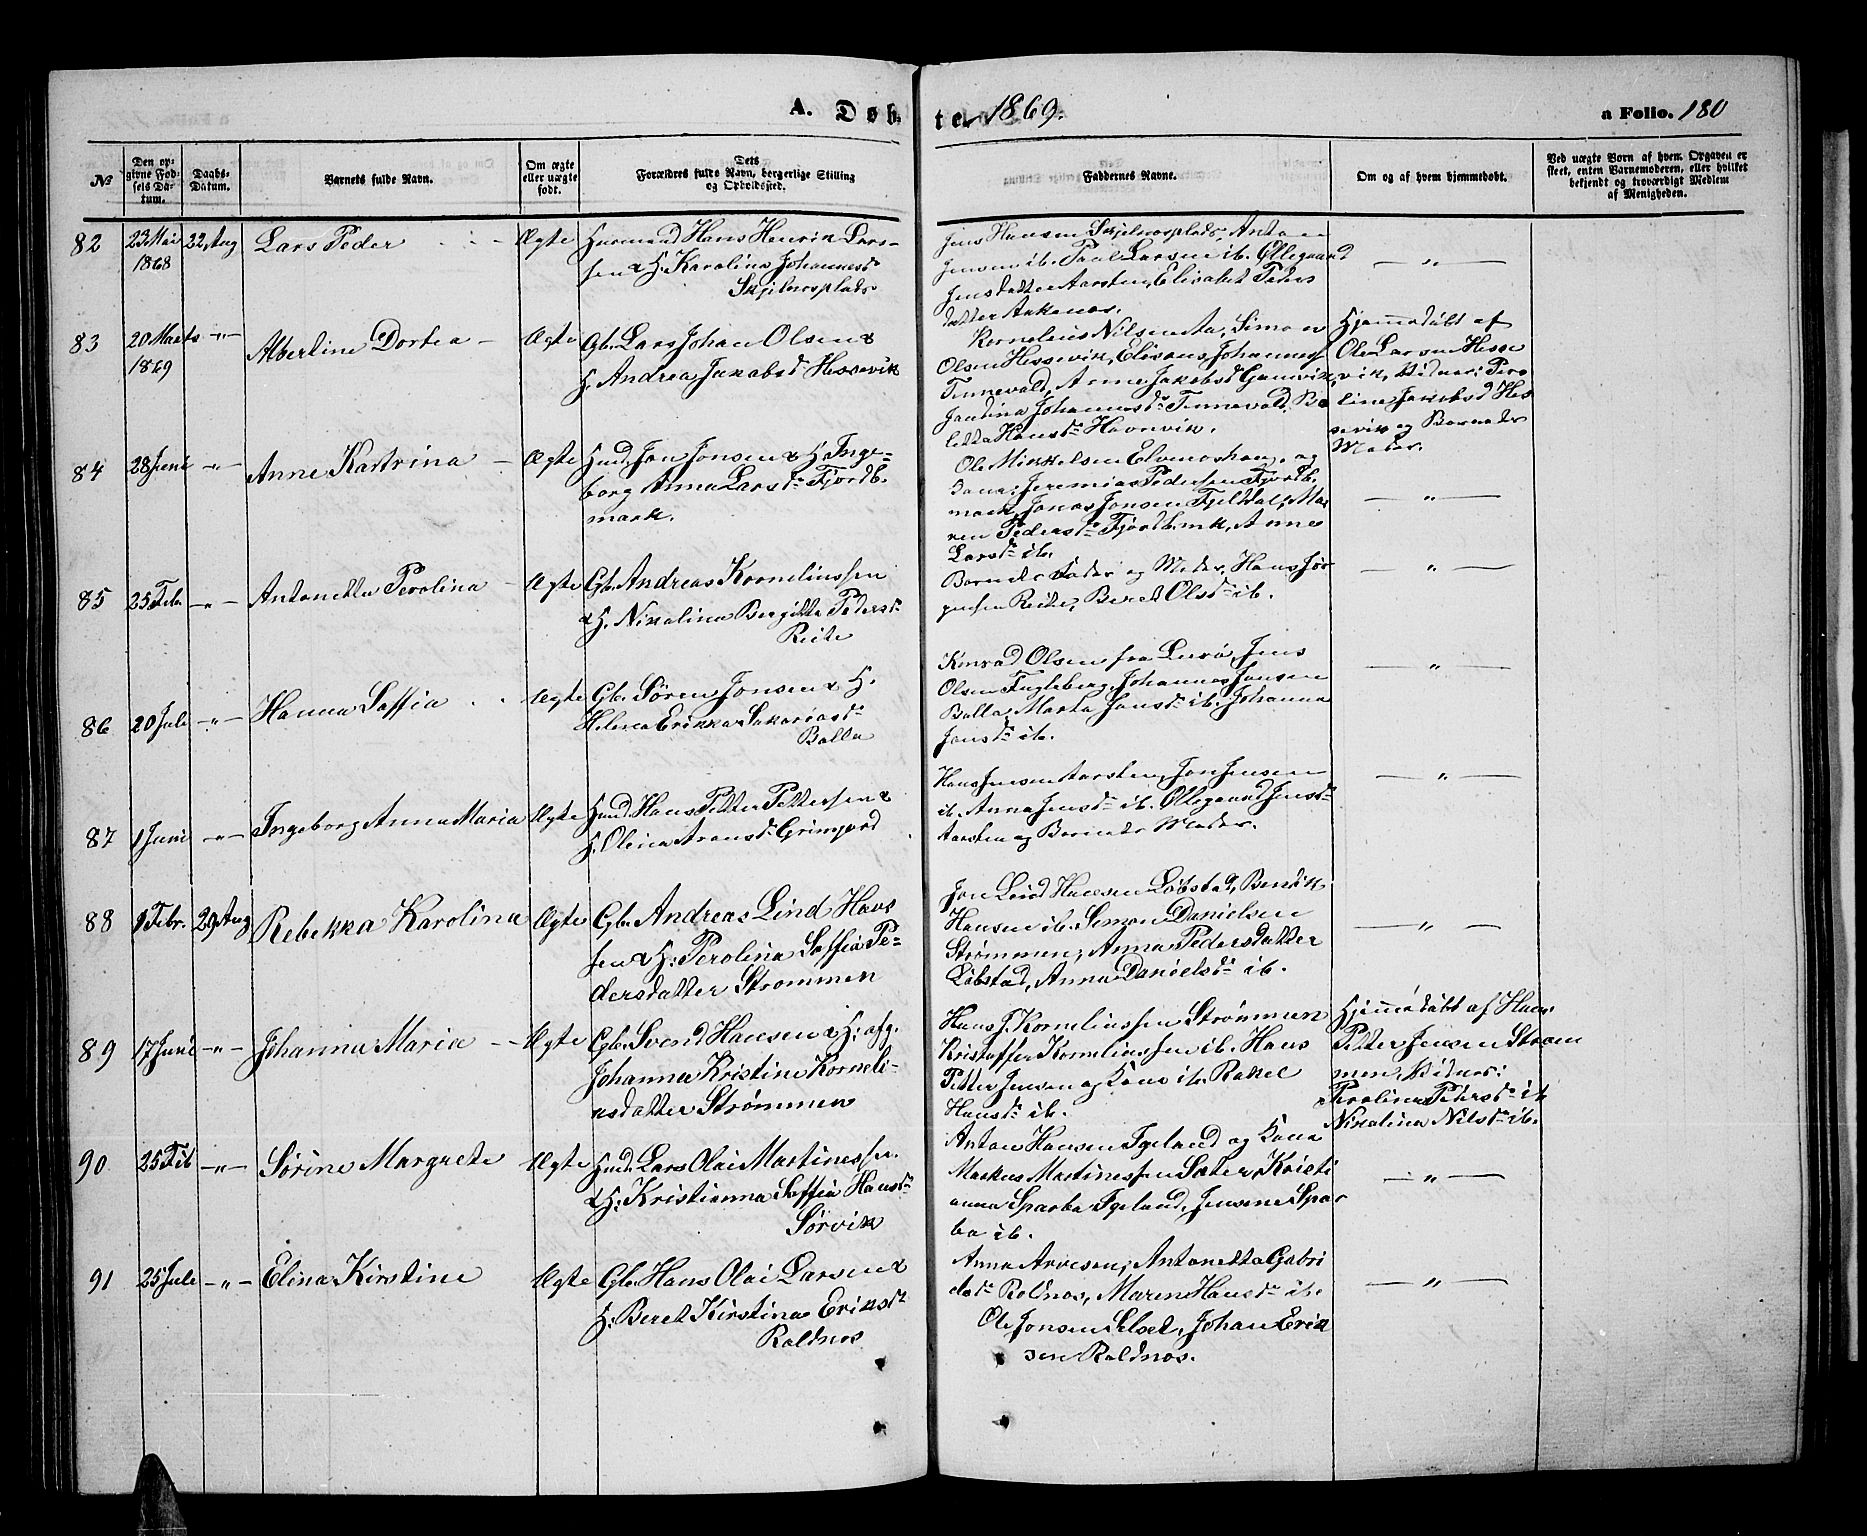 A. Døb
te. 1869.
a Folio. 180
No
Den op-
givne Fød-
sels Da-
tum.
Daabs-
Datum.
Barnets fulde Navn.
Om ægte
eller uægte
født.
Dets
Forældres fulde Navn, borgerlige Stilling
og Opholdssted.
Faddernes Navne.
Om og af hvem hjemmedøbt.
Ved uægte Børn af hvem Opgaven er
skeet, enten Barnemoderen, eller hvilket
bekjendt og troværdigt Medlem
af Menigheden.
82 23 Mai 22 Aug Lars Peder Ægte Huusmand Hans Henrik Lars-
1868 sen & H. Karolina Johannesd.
Skjelnesplads
Jens Hansen Skjelnesplads, Anton
Jensen ib. Paul Larsen ib. Ollegaard
Jensdatter Aarsten, Elisabet Peders
datter Aakenes. — " —
83 20 Marts — " — Albertine Dortea — Ægte Gb. Lars Johan Olsen &
1869 H. Andrea Jakobsd. Hessevik
Kornelius Nilsen Aa, Simon
Olsen Hessevik, Elisæus Johannes.
Tennevald, Anne Jakobsd. Gamvik,
Jandina Johannesd. Tennevald, Be
letta Hansd. Havnvik.
Hjemmedøbt af
Ole Larsen Hesse
vik, Vidner: Pero
line Jakobsd. Hes
sevik og Barnets
Moder.
84 28 Juni — " — Anne Kartrina — Ægte Hmd. Jon Jonsen & H. Inge-
borg Anna Larsd. Fjordb.
mark.
Ole Mikkelsen Elveneshaug og
Kona, Jeremias Pedersen Fjordb.
mark, Jonas Jonsen Fjeldal, Ma
ren Pedersd. Fjordb.mk, Anne
Larsd. ib. — " —
85 25 Feb. — " — Antonetta Perolina — Ægte Gb. Andreas Korneliussen
& H. Nikolina Bergitte Pedersd.
Reite
Barnets Fader og Moder, Hans Jør
gensen Reite, Beret Olsd. ib. — " —
86 20 Juli — " — Hanna Soffia Ægte Gb. Søren Jonsen & H.
Helena Erikka Sakariasd.
Balla
Konrad Olsen fra Lurø, Jens
Olsen Fugleberg, Johannes Jonsen
Balla, Marta Jonsd. ib. Johanna
Jonsd. ib. — " —
87 1 Juni — " — Ingeborg Anna Maria Ægte Hmd. Hans Petter Pettersen &
H. Olina Aronsd. Grimjord
Hans Jensen Aarsten, Jon Jensen
ib. Anna Jensd. ib. Ollegaard Jensd.
Aarsten og Barnets Moder. — " —
88 9 Febr. 29 Aug Rebekka Karolina Ægte Gb. Andreas Lind Hans
sen & H: Perolina Soffia Pe-
dersdatter Strømmen
Jon Lind Hansen Løbstad, Benedik
Hansen ib. Simon Danielsen
Strømmen, Anna Pedersdatter
Løbstad, Anna Danielsd. ib. — " —
89 17 Juni — " — Johanna Maria — Ægte Gb. Svend Hansen & H: afg.
Johanna Kristine Korneli-
usdatter Strømmen
Hans J. Korneliussen Strømmen
Kristoffer Korneliussen ib. Hans
Petter Jensen og Kone ib. Rakel
Hansd. ib.
Hjemmedøbt af Hans
Petter Jensen Strøm
men, Vidner:
Perolina Pedersd. ib
Nikolina Nilsd. ib.
90 25 Feb — " — Sørine Margrete Ægte Hmd. Lars Olai Martinessen
& H: Kristianna Soffia Hansd.
Sørvik
Anton Hansen Igeland og Kona
Markus Martinessen Sæter, Kristi
anna Sparbo Igeland, Jensine Spar
bo ib. — " —
91 25 Juli — " — Elina Kirstine Ægte Gb. Hans Olai Larsen &
H: Beret Kirstina Eriksd.
Roldnes
Anna Arvesen, Antonetta Gabri
elsd. Roldnes, Maren Hansd. ib.
Ole Jonsen Selset, Johan Erik
sen Roldnes. — " —